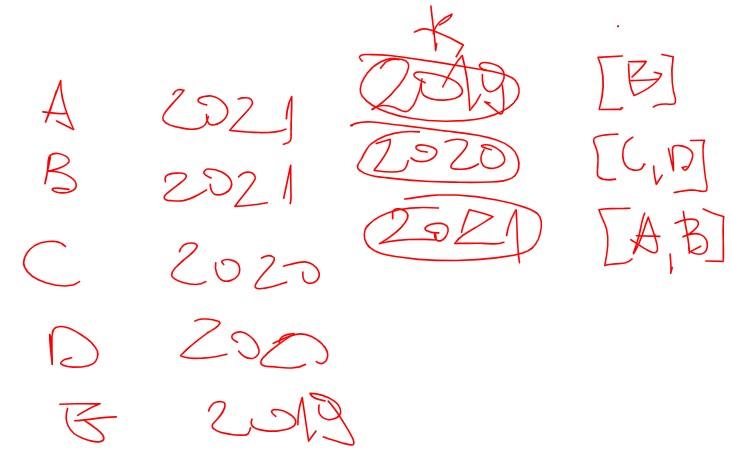 A 2021
B 2021
C 2020
D 2020
E 2019
K
2019 [E]
2020 [C,D]
2021 [A,B]